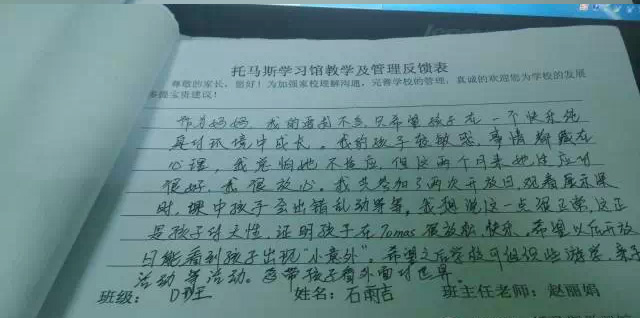 托马斯学习馆教学及管理反馈表
尊敬的家长，您好！为加强家校理解沟通，完善学校的管理，真诚的欢迎您为学校的发展
多提宝贵建议！
作为妈妈，我的要求不高只希望孩子在一个快乐纯
真的环境中成长。我的孩子较敏感，事情都藏在
心理，我觉怕她不适应，但这两个月来她适应的
很好，我很放心。我共参加了两次开放日，观看展示课
时，课中孩子会出错乱动等等，我想说这一点很正常，这正
是孩子的天性，证明孩子在Tomas里放松、快乐，希望以后开放
日能看到孩子出现“小意外”。希望之后学校可组织些游学、亲子
活动等活动。带孩子看外面的世界。
班级： D班 姓名：石雨吉 班主任老师：赵丽娟